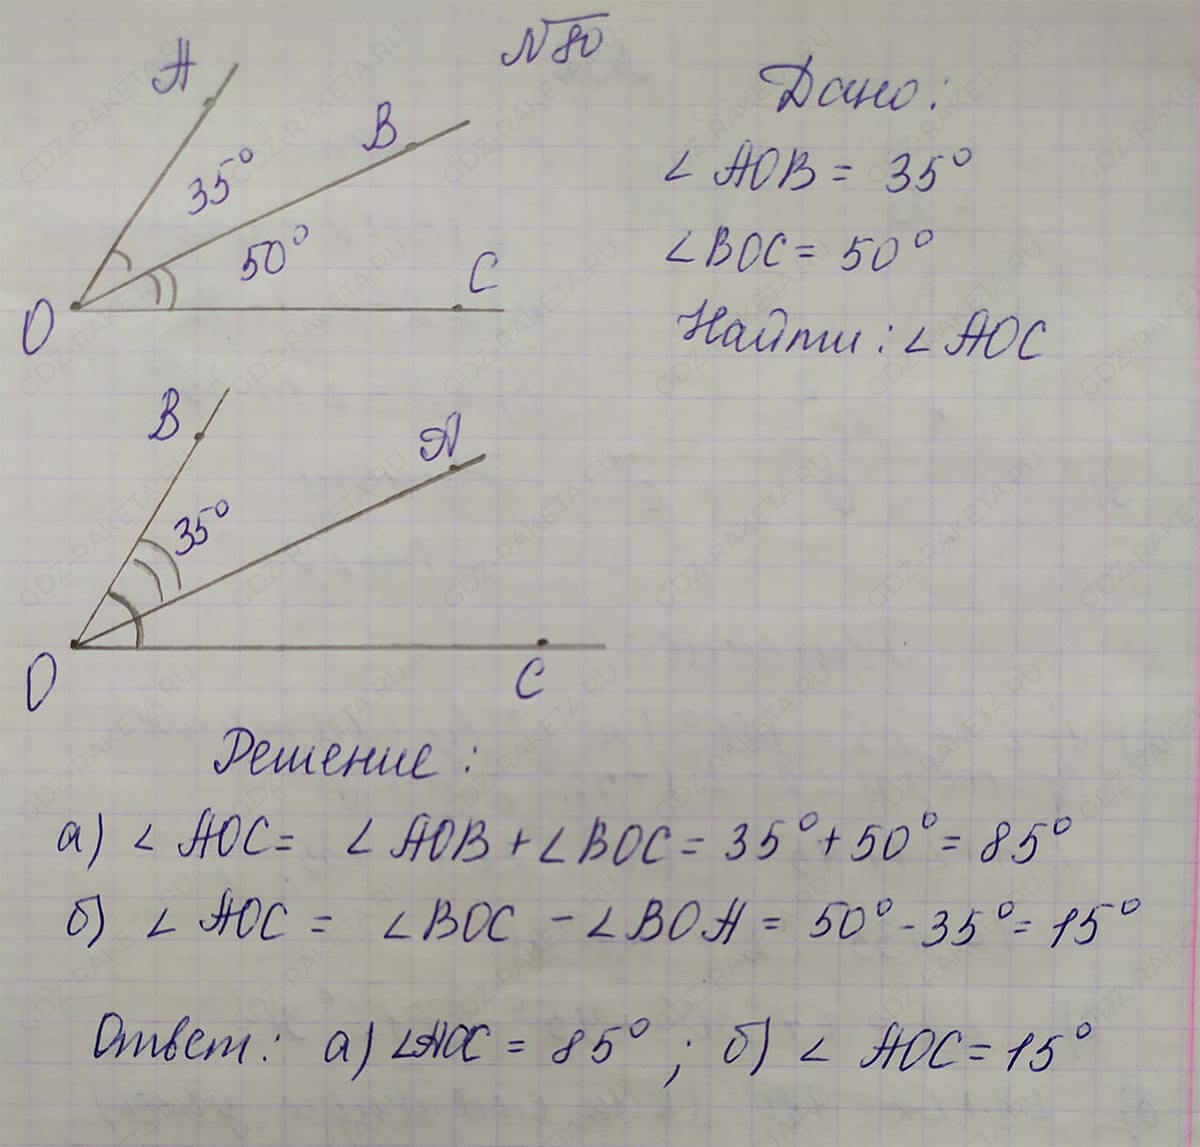 N80
A
B
35°
50°
C
O
Дано:
∠ AOB = 35°
∠ BOC = 50°
Найти: ∠ AOC
B
A
35°
O
C
Решение:
а) ∠ AOC = ∠ AOB + ∠ BOC = 35° + 50° = 85°
б) ∠ AOC = ∠ BOC - ∠ BOA = 50° - 35° = 15°
Ответ: а) ∠AOC = 85° ; б) ∠ AOC = 15°
GDZ-RAKETA.RU